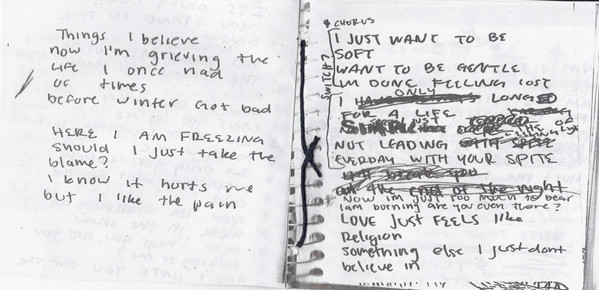 Things I believe
now I'm grieving the
life I once had
of times
before winter got bad
HERE I AM FREEZING
should I just take the
blame?
I know it hurts me
but I like the pain
CHORUS
SWITCH?
I JUST WANT TO BE
SOFT
WANT TO BE GENTLE
IM DONE FEELING LOST
I ONLY LONG
FOR A LIFE
NOT LEADING
EVERDAY WITH YOUR SPITE
at the end of the night
NOW im just too much to bear
I am burning are you even there?
LOVE JUST FEELS like
Religion
something else I just dont
believe in